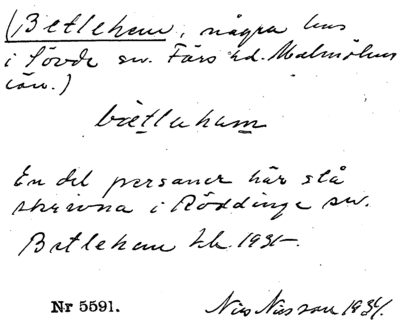 (Betlehem, några hus
i Sövde sn. Färs hd. Malmöhus
län.)
bætlehem
En del personer här stå
skrivna i Röddinge sn.
Betlehem hb. 1931-
Nr 5591. Nils Nilsson 1934.